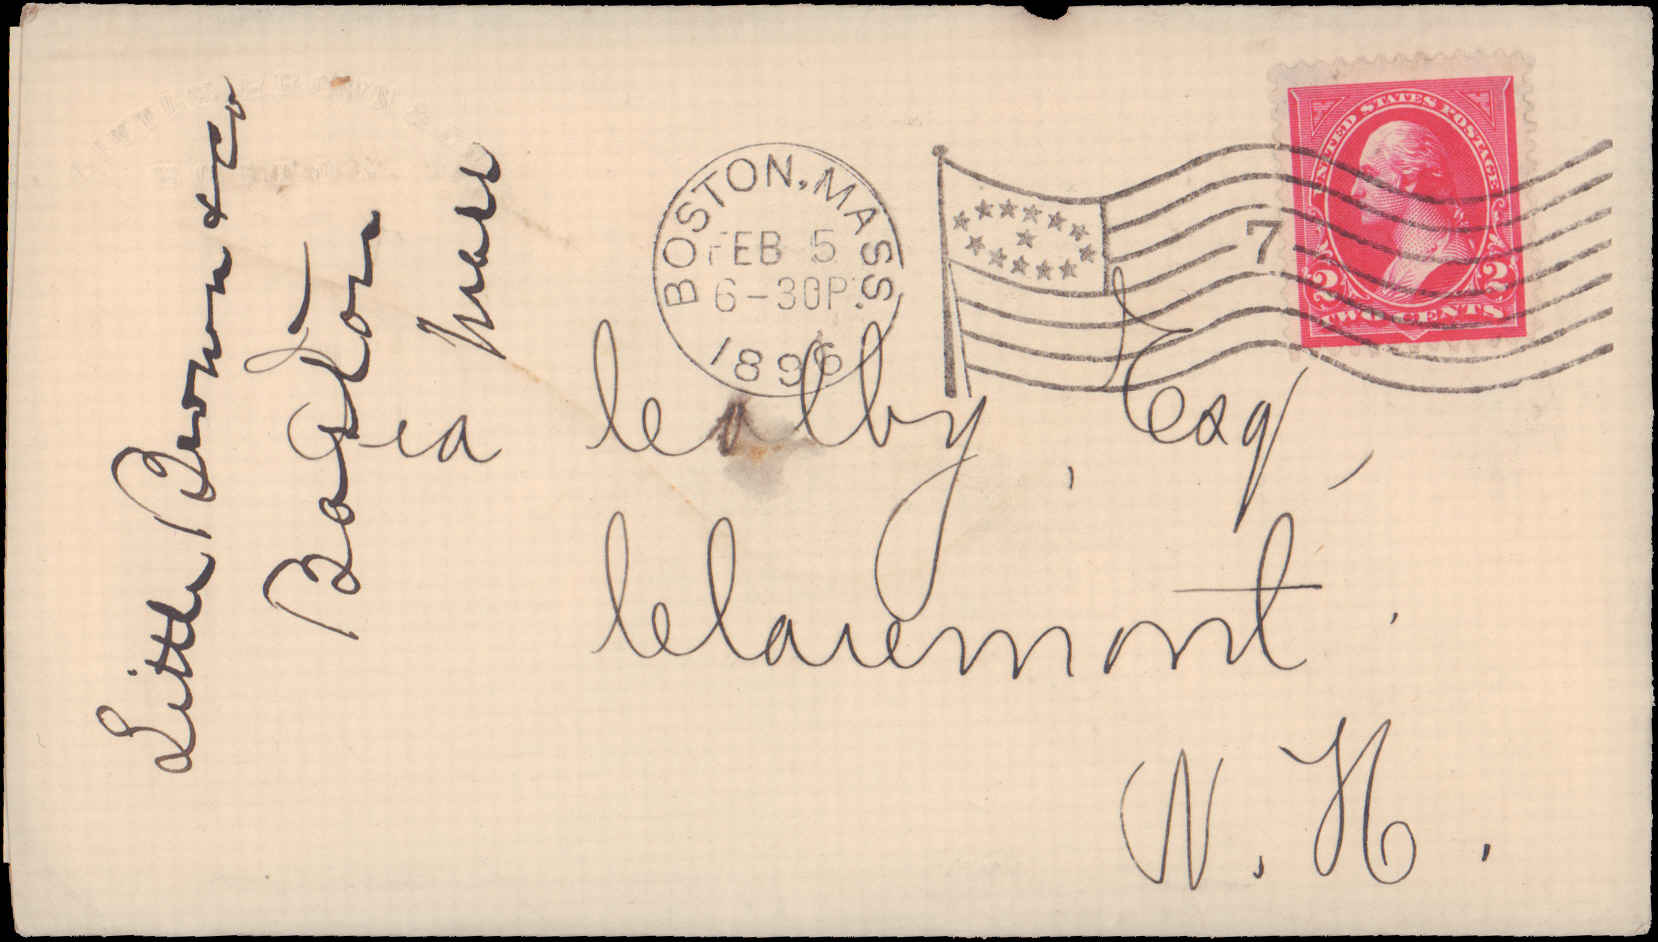 Little Brown & Co
Boston
Mass
BOSTON, MASS.
FEB 5
6-30P
1896
7
UNITED STATES POSTAGE
2 2
TWO CENTS
Ira Colby, Esq,
Claremont.
N. H.